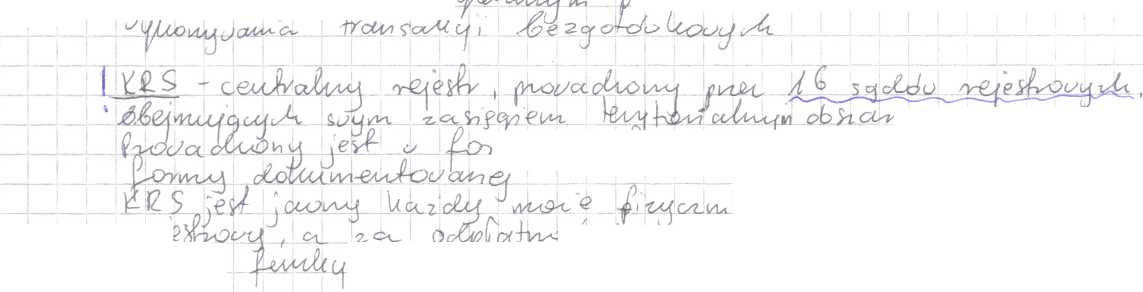 wykonywania transakcji bezgotówkowych
KRS - centralny rejestr, prowadzony przez 16 sądów rejestrowych,
obejmujących swym zasięgiem terytorialnym obszar
Prowadzony jest w for
formy dokumentowanej
KRS jest jawny każdy może fizyczn
estrowy, a za odpłatn